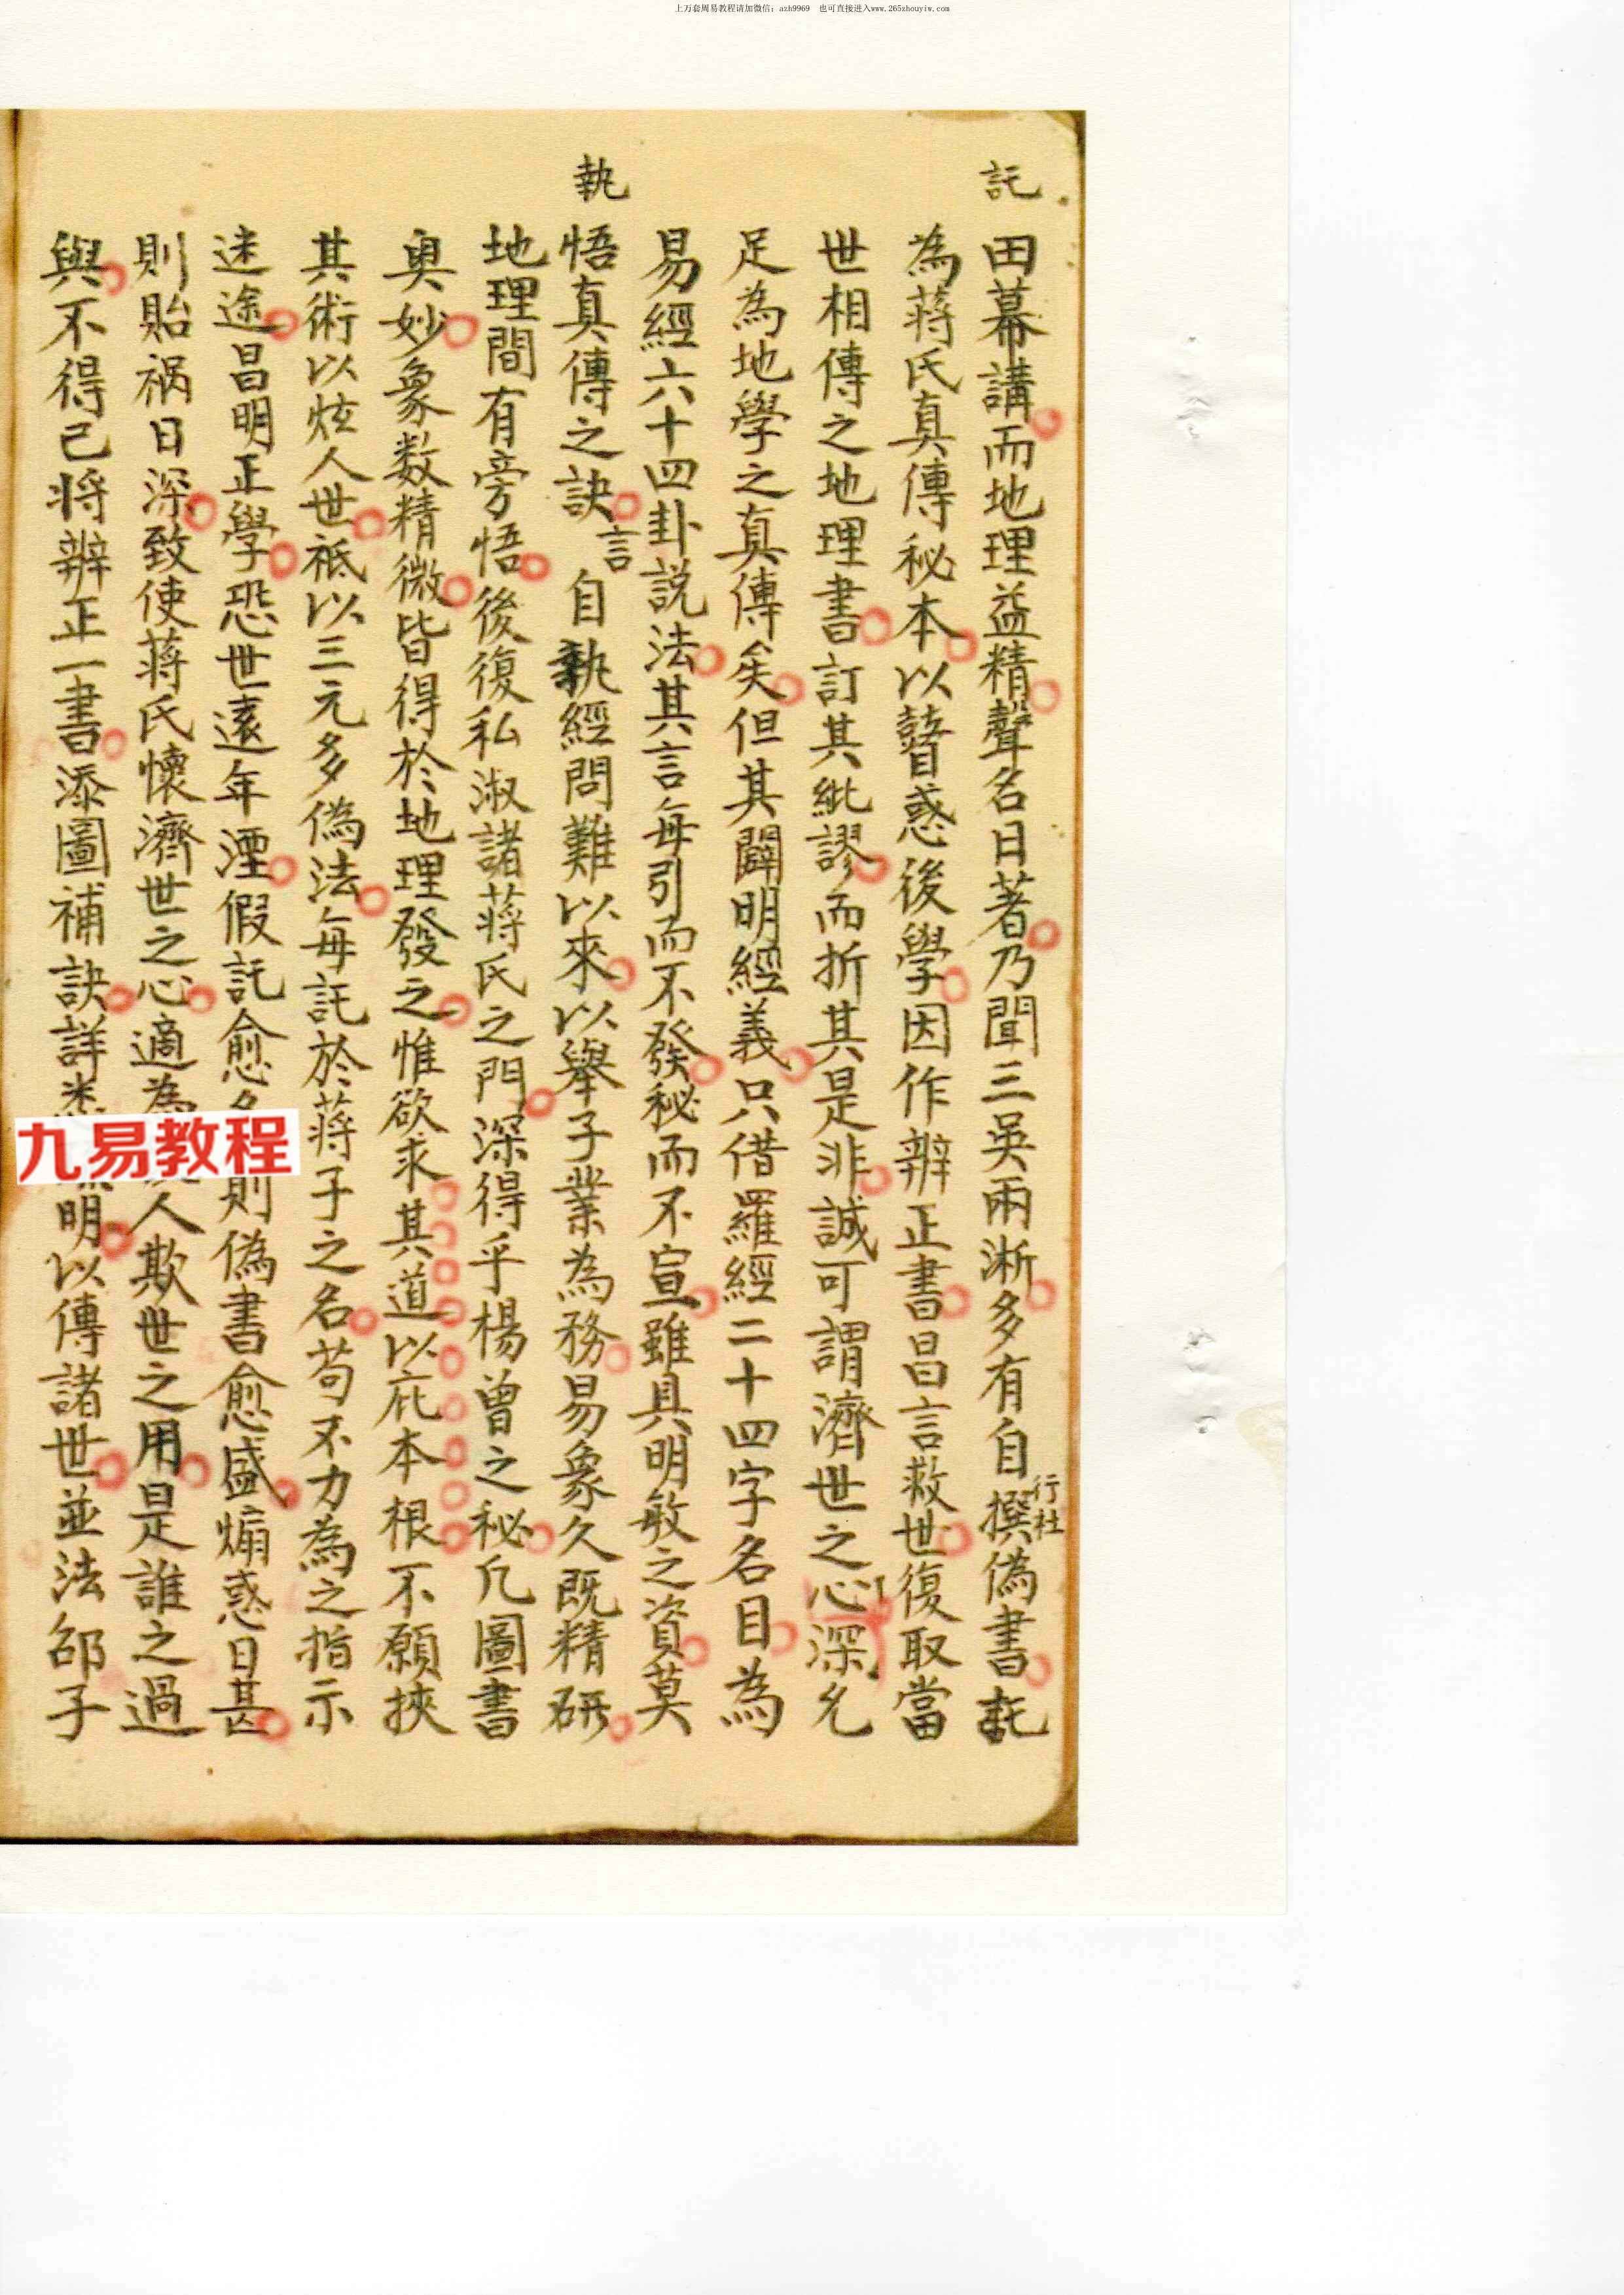 上万套周易教程请加微信：azh9969　也可直接进入www.265zhouyiw.com
託
田幕講而地理益精聲名日著乃聞三吳兩淅多有自撰偽書託
行社
為蔣氏真傳秘本以瞽惑後學因作辨正書昌言救世復取當
世相傳之地理書訂其紕謬而折其是非誠可謂濟世之心深允
足為地學之真傳矣但其闢明經義只借羅經二十四字名目為
易經六十四卦説法其言每引而不發秘而不宣雖具明敏之資莫
執
悟真傳之訣言自執經問難以來以舉子業為務易象久既精研
地理間有旁悟後復私淑諸蔣氏之門深得乎楊曾之秘凡圖書
奥妙象数精微皆得於地理發之惟欲求其道以庇本根不願挾
其術以炫人世祗以三元多偽法每託於蔣子之名苟不力為之指示
迷途昌明正學恐世遠年湮假託愈則偽書愈盛煽惑日甚
則貽祸日深致使蔣氏懷濟世之心適為人欺世之用是誰之過
與不得已将辨正一書添圖補訣詳明以傳諸世並法邵子
九易教程